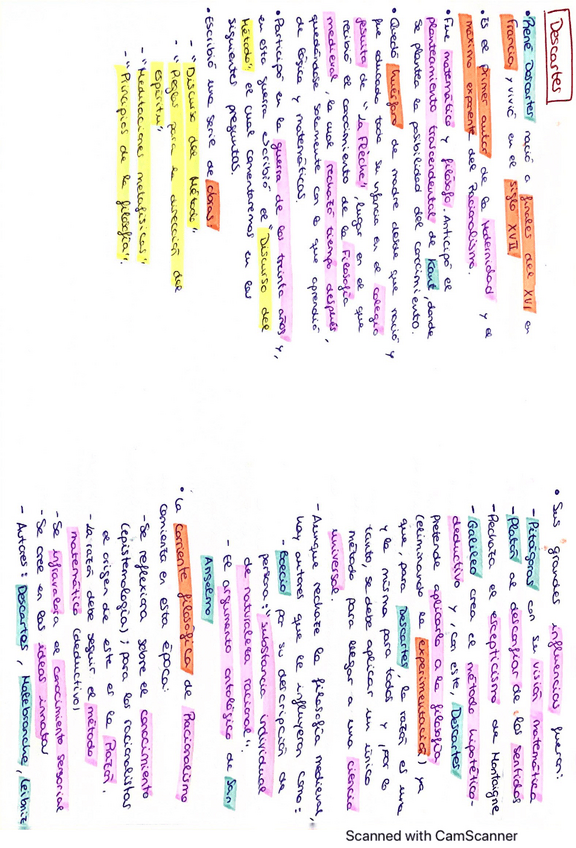 Descartes
• René Descartes nació a finales del XVI en
Francia y vivió en el siglo XVII
• Es el primer autor de la Modernidad y el
máximo exponente del Racionalismo.
• Fue matemático y filósofo. Anticipó el
planteamiento trascendental de Kant, donde
se plantea la posibilidad del conocimiento.
• Quedó huérfano de madre desde que nació y
fue educado toda su infancia en el colegio
jesuita de "La Flèche", lugar en el que
recibió el conocimiento de la Filosofía
medieval, la cual rechazó tiempo después,
quedándose solamente con lo que aprendió
de lógica y matemáticas.
• Participó en la guerra de los treinta años y,
en esta guerra escribió el "Discurso del
Método", el cual comentaremos en las
siguientes preguntas.
• Escribió una serie de obras:
- "Discurso del Método".
- "Reglas para la dirección del
espíritu".
- "Meditaciones metafísicas".
- "Principios de la filosofía".
• Sus grandes influencias fueron:
- Pitágoras con su visión matemática
- Platón al desconfiar de los sentidos
- Rechaza el escepticismo de Montaigne
- Galileo crea el método hipotético-
deductivo y, con este, Descartes
pretende aplicarlo a la filosofía
(eliminando la experimentación) ya
que, para Descartes, la razón es una
y la misma para todos y, por lo
tanto, se debe aplicar un único
método para llegar a una ciencia
universal.
- Aunque rechace la filosofía medieval,
hay autores que le influyeron como:
- Boecio por su descripción de
persona: "substancia individual
de naturaleza racional".
- El argumento ontológico de San
Anselmo
• La corriente filosófica de Racionalismo
comienza en esta época:
- Se reflexiona sobre el conocimiento
(epistemología); para los racionalistas
el origen de este es la Razón.
- La razón debe seguir el método
matemático (deductivo)
- Se infravalora el conocimiento sensorial
- Se cree en las ideas innatas
- Autores: Descartes, Malebranche, Leibniz
Scanned with CamScanner